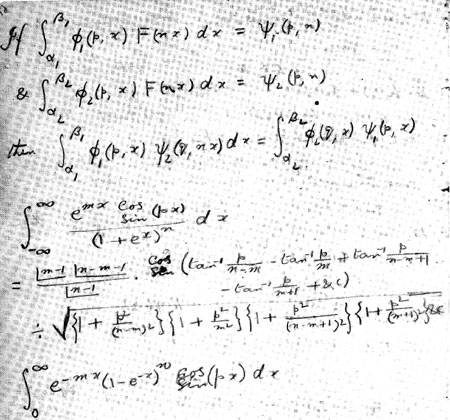 If ∫_{α₁}^{β₁} φ₁(p, x) F(nx) dx = ψ₁(p, n)
& ∫_{α₂}^{β₂} φ₂(p, x) F(nx) dx = ψ₂(p, n)
then ∫_{α₁}^{β₁} φ₁(p, x) ψ₂(q, nx) dx = ∫_{α₂}^{β₂} φ₂(q, x) ψ₁(p, x)
∫_{-∞}^{∞} e^{mx} cos sin (px) / (1 + e^x)^n dx
= |m-1 |n-m-1 / |n-1 · cos sin (tan⁻¹ p/(n-m) - tan⁻¹ p/m + tan⁻¹ p/(n-m+1)
- tan⁻¹ p/(m+1) + &c)
÷ √{1 + p²/(n-m)²}{1 + p²/m²}{1 + p²/(n-m+1)²}{1 + p²/(m+1)²}&c
∫_0^∞ e^{-mx} (1-e^{-x})^n cos sin (px) dx